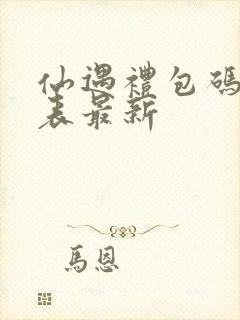 仙遇禮包碼
表最新
馬恩